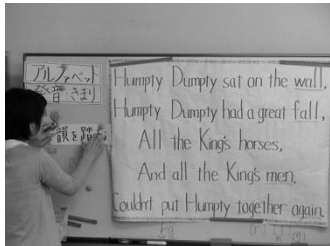 アルファベット
発音 きまり
韻を踏む
Humpty Dumpty sat on the wall,
Humpty Dumpty had a great fall,
All the King's horses,
And all the King's men,
Couldn't put Humpty together again.